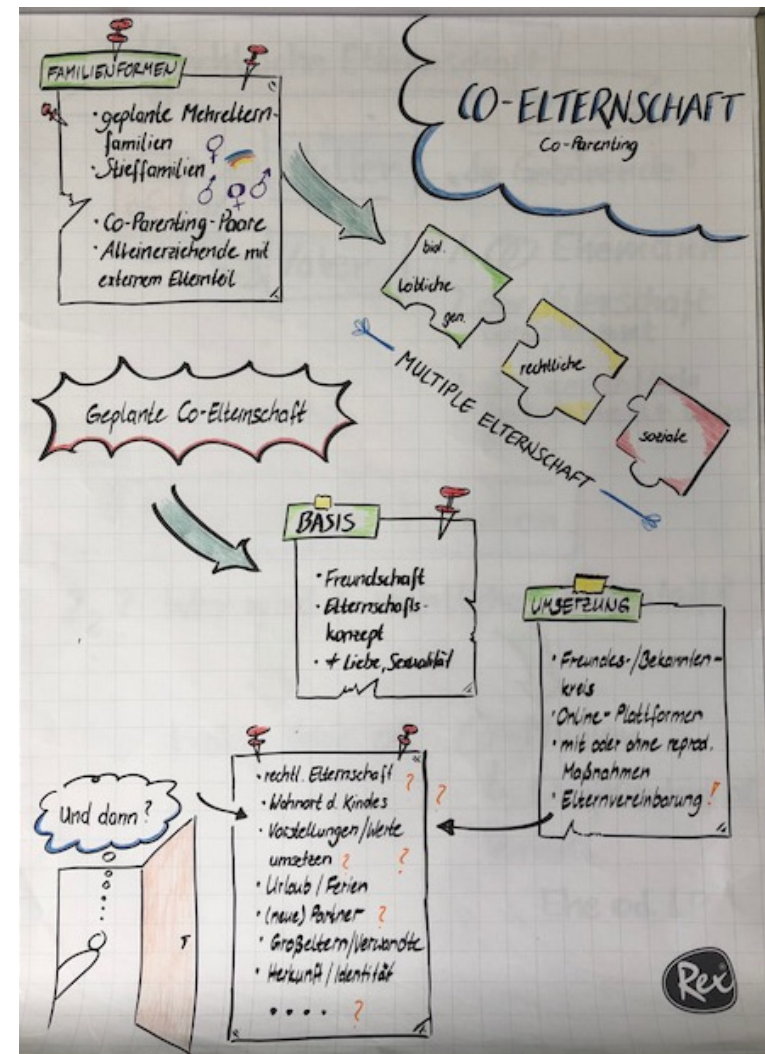 CO-ELTERNSCHAFT
Co-Parenting
FAMILIENFORMEN
• geplante Mehreltern-
familien
• Stieffamilien
• Co-Parenting-Paare
• Alleinerziehende mit
externem Elternteil
biol.
leibliche
gen.
rechtliche
soziale
MULTIPLE ELTERNSCHAFT
Geplante Co-Elternschaft
BASIS
• Freundschaft
• Elternschafts-
konzept
• ≠ Liebe, Sexualität
UMSETZUNG
• Freundes-/Bekannten-
kreis
• Online-Plattformen
• mit oder ohne reprod.
Maßnahmen
• Elternvereinbarung!
Und dann?
• rechtl. Elternschaft ?
• Wohnort d. Kindes ?
• Vorstellungen/Werte
umsetzen ? ?
• Urlaub/Ferien
• (neue) Partner ?
• Großeltern/Verwandte
• Herkunft/Identität
• • • • ?
Rex